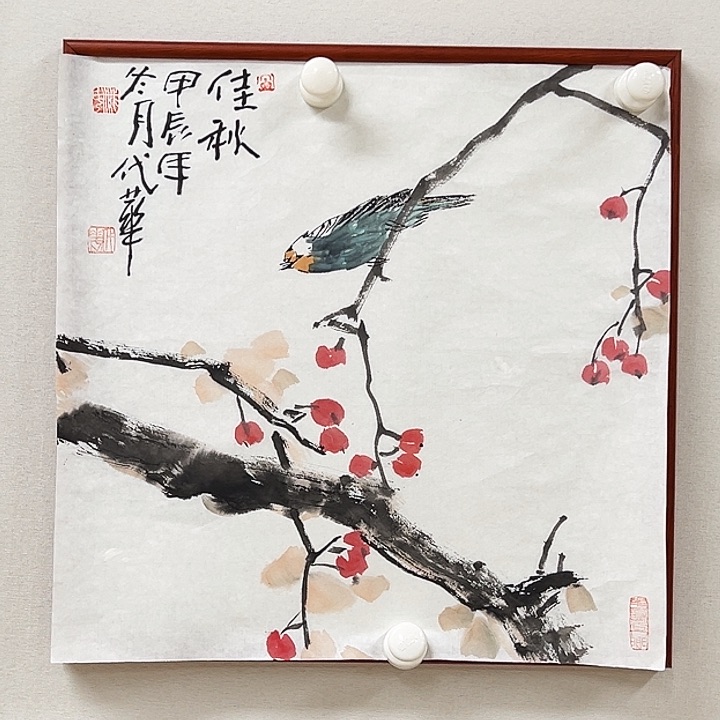 佳秋
甲辰年
冬月代華